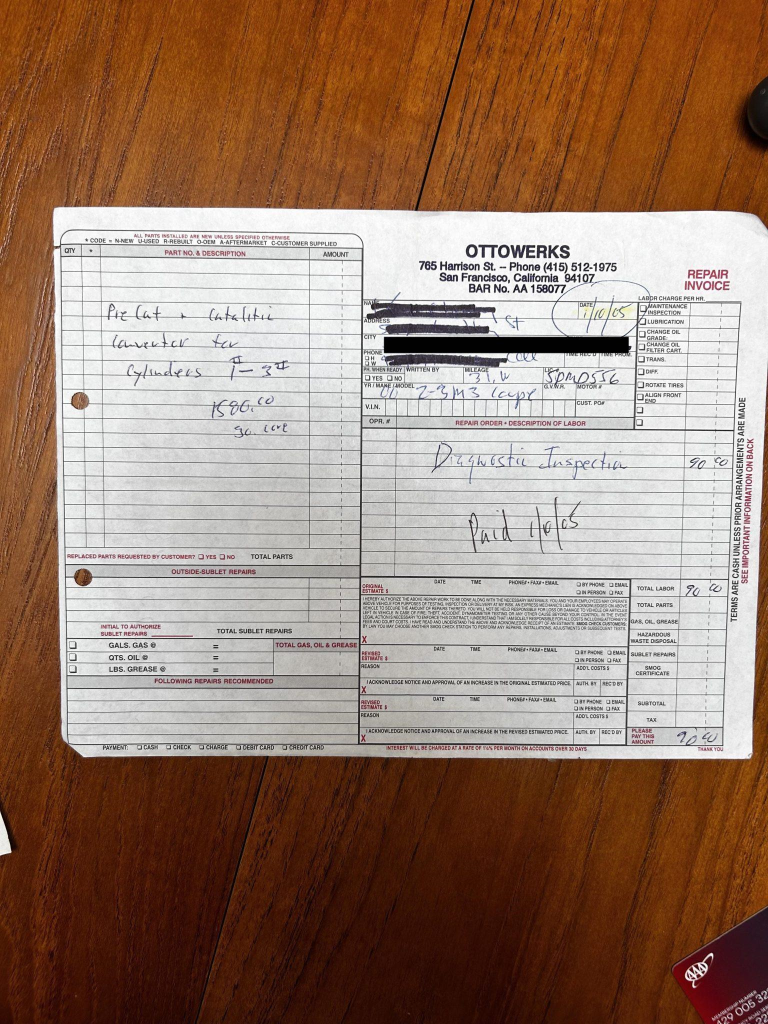 ALL PARTS INSTALLED ARE NEW UNLESS SPECIFIED OTHERWISE
* CODE = N-NEW U-USED R-REBUILT O-OEM A-AFTERMARKET C-CUSTOMER SUPPLIED
QTY * PART NO. & DESCRIPTION AMOUNT
Pre Cat + Catalitic
Converter for
Cylinders 1-3
1580.00
90. core
REPLACED PARTS REQUESTED BY CUSTOMER? YES NO TOTAL PARTS
OUTSIDE-SUBLET REPAIRS
INITIAL TO AUTHORIZE
SUBLET REPAIRS TOTAL SUBLET REPAIRS
GALS. GAS @ = TOTAL GAS, OIL & GREASE
QTS. OIL @ =
LBS. GREASE @ =
FOLLOWING REPAIRS RECOMMENDED
PAYMENT: CASH CHECK CHARGE DEBIT CARD CREDIT CARD
OTTOWERKS
765 Harrison St. -- Phone (415) 512-1975
San Francisco, California 94107
BAR No. AA 158077
REPAIR
INVOICE
NAME DATE 1/10/05
ADDRESS St
CITY
PHONE
H
W
TIME REC'D TIME PROM.
PH. WHEN READY WRITTEN BY MILEAGE
YES NO 5DMD556
G.V.W.R. MOTOR #
YR / MAKE / MODEL 2-3 M3 coupe
V.I.N. CUST. PO#
LABOR CHARGE PER HR.
MAINTENANCE
INSPECTION
LUBRICATION
CHANGE OIL
GRADE:
CHANGE OIL
FILTER CART.
TRANS.
DIFF.
ROTATE TIRES
ALIGN FRONT
END
OPR. # REPAIR ORDER • DESCRIPTION OF LABOR
Diagnostic Inspection 90 00
Paid 1/10/05
ORIGINAL
ESTIMATE $ DATE TIME PHONE# • FAX# • EMAIL BY PHONE EMAIL
IN PERSON FAX
X
REVISED
ESTIMATE $ DATE TIME PHONE# • FAX# • EMAIL BY PHONE EMAIL
IN PERSON FAX
REASON ADD'L COSTS $
I ACKNOWLEDGE NOTICE AND APPROVAL OF AN INCREASE IN THE ORIGINAL ESTIMATED PRICE. AUTH. BY REC'D BY
X
REVISED
ESTIMATE $ DATE TIME PHONE# • FAX# • EMAIL BY PHONE EMAIL
IN PERSON FAX
REASON ADD'L COSTS $
I ACKNOWLEDGE NOTICE AND APPROVAL OF AN INCREASE IN THE REVISED ESTIMATED PRICE. AUTH. BY REC'D BY
X
INTEREST WILL BE CHARGED AT A RATE OF 1½% PER MONTH ON ACCOUNTS OVER 30 DAYS
TOTAL LABOR 90 00
TOTAL PARTS
GAS, OIL, GREASE
HAZARDOUS
WASTE DISPOSAL
SUBLET REPAIRS
SMOG
CERTIFICATE
SUBTOTAL
TAX
PLEASE
PAY THIS
AMOUNT 90 00
THANK YOU
TERMS ARE CASH UNLESS PRIOR ARRANGEMENTS ARE MADE
SEE IMPORTANT INFORMATION ON BACK
AAA
MEMBERSHIP NUMBER